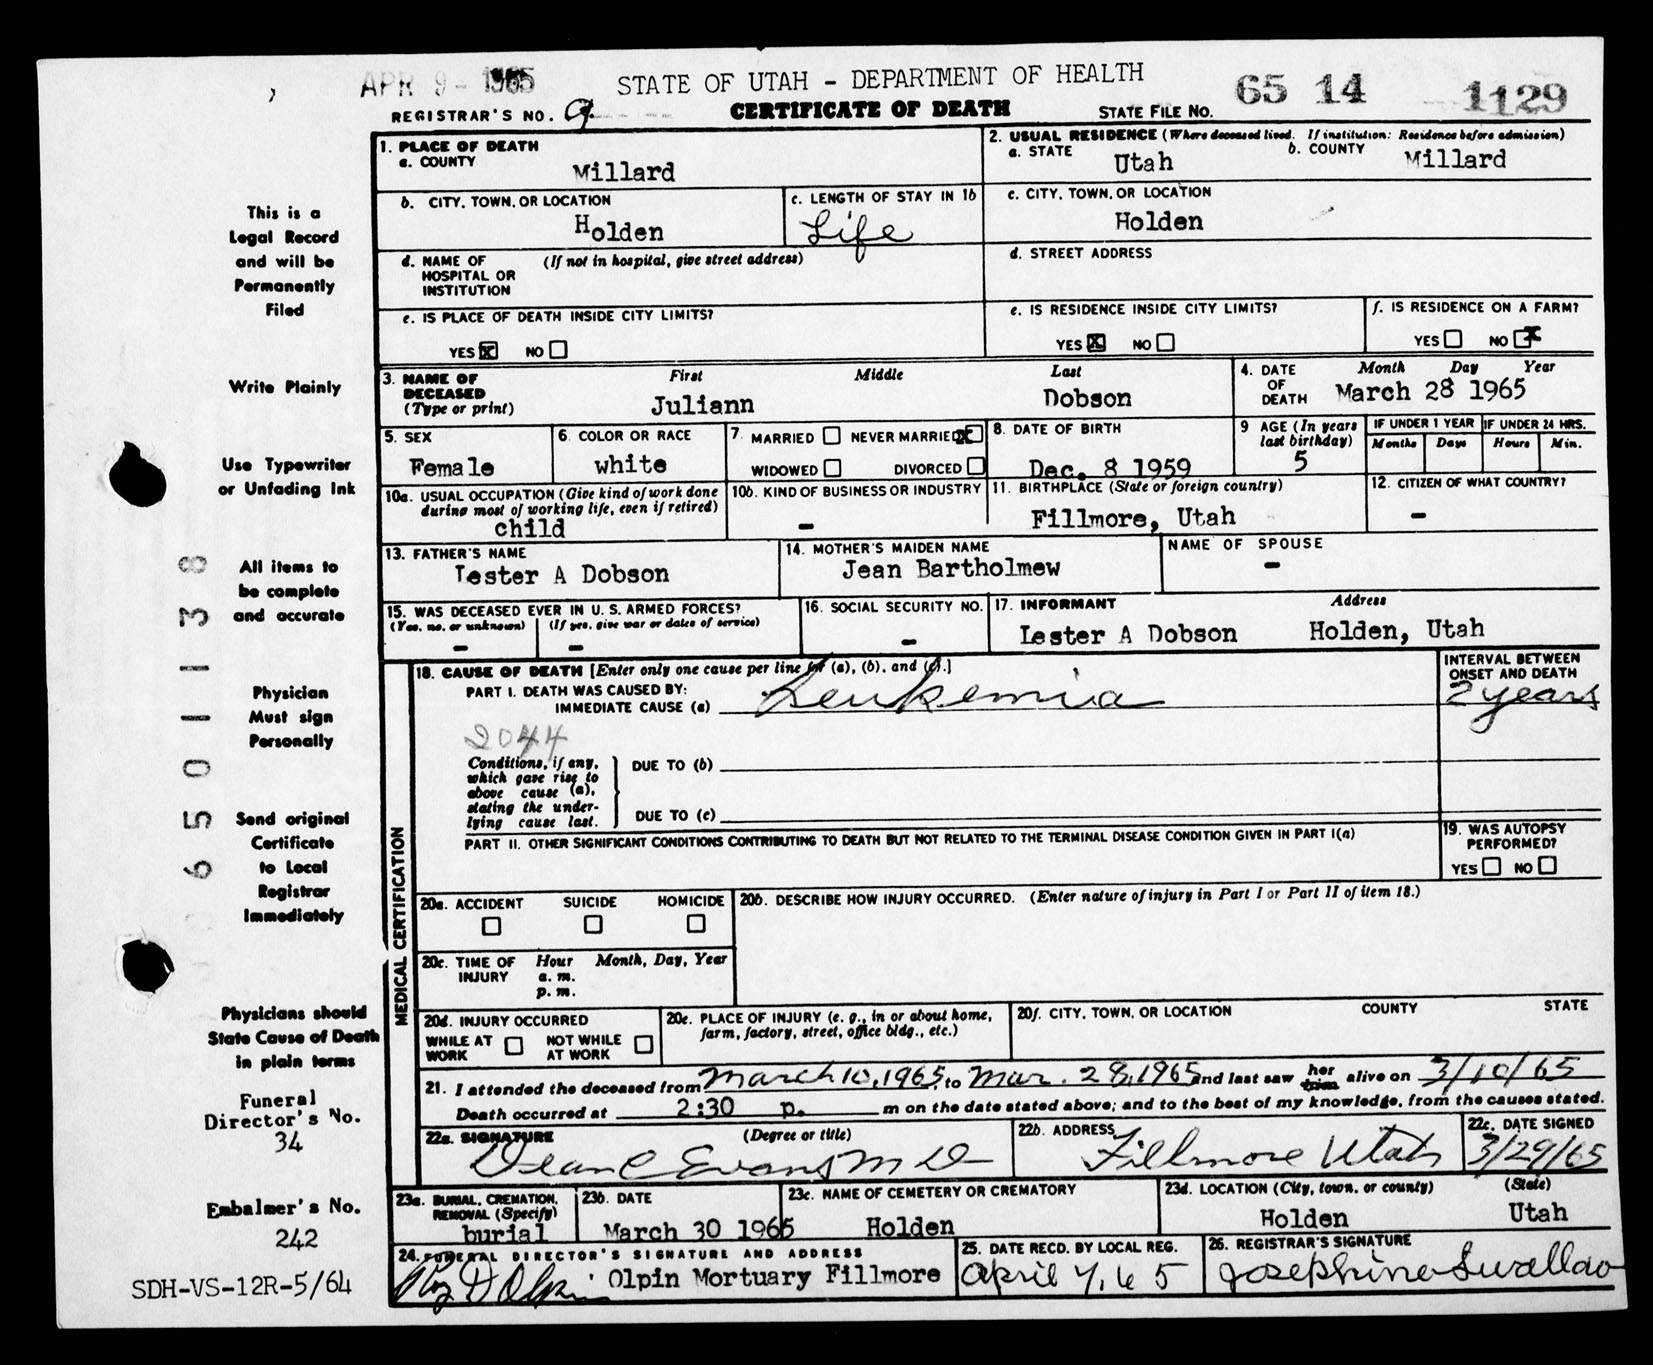 APR 9 - 1965
STATE OF UTAH - DEPARTMENT OF HEALTH
65 14 1129
REGISTRAR'S NO. 9
CERTIFICATE OF DEATH
STATE FILE NO.
1. PLACE OF DEATH
a. COUNTY
Millard
2. USUAL RESIDENCE (Where deceased lived. If institution: Residence before admission)
a. STATE
Utah
b. COUNTY
Millard
b. CITY, TOWN, OR LOCATION
Holden
c. LENGTH OF STAY IN 1b
Life
c. CITY, TOWN, OR LOCATION
Holden
d. NAME OF HOSPITAL OR INSTITUTION
(If not in hospital, give street address)
d. STREET ADDRESS
e. IS PLACE OF DEATH INSIDE CITY LIMITS?
YES X NO
e. IS RESIDENCE INSIDE CITY LIMITS?
YES X NO
f. IS RESIDENCE ON A FARM?
YES NO X
3. NAME OF DECEASED
(Type or print)
First Middle Last
Juliann Dobson
4. DATE OF DEATH
Month Day Year
March 28 1965
5. SEX
Female
6. COLOR OR RACE
white
7. MARRIED NEVER MARRIED X
WIDOWED DIVORCED
8. DATE OF BIRTH
Dec. 8 1959
9 AGE (In years last birthday)
5
IF UNDER 1 YEAR
Months Days
IF UNDER 24 HRS.
Hours Min.
10a. USUAL OCCUPATION (Give kind of work done during most of working life, even if retired)
child
10b. KIND OF BUSINESS OR INDUSTRY
-
11. BIRTHPLACE (State or foreign country)
Fillmore, Utah
12. CITIZEN OF WHAT COUNTRY?
-
13. FATHER'S NAME
Lester A Dobson
14. MOTHER'S MAIDEN NAME
Jean Bartholmew
NAME OF SPOUSE
-
15. WAS DECEASED EVER IN U. S. ARMED FORCES?
(Yes, no, or unknown) (If yes, give war or dates of service)
- -
16. SOCIAL SECURITY NO.
-
17. INFORMANT Address
Lester A Dobson Holden, Utah
18. CAUSE OF DEATH [Enter only one cause per line for (a), (b), and (c).]
PART I. DEATH WAS CAUSED BY:
IMMEDIATE CAUSE (a) Leukemia
INTERVAL BETWEEN ONSET AND DEATH
2 years
2044
Conditions, if any, which gave rise to above cause (a), stating the underlying cause last.
DUE TO (b)
DUE TO (c)
PART II. OTHER SIGNIFICANT CONDITIONS CONTRIBUTING TO DEATH BUT NOT RELATED TO THE TERMINAL DISEASE CONDITION GIVEN IN PART I(a)
19. WAS AUTOPSY PERFORMED?
YES NO
MEDICAL CERTIFICATION
20a. ACCIDENT SUICIDE HOMICIDE
20b. DESCRIBE HOW INJURY OCCURRED. (Enter nature of injury in Part I or Part II of item 18.)
20c. TIME OF INJURY
Hour Month, Day, Year
a. m.
p. m.
20d. INJURY OCCURRED
WHILE AT WORK NOT WHILE AT WORK
20e. PLACE OF INJURY (e. g., in or about home, farm, factory, street, office bldg., etc.)
20f. CITY, TOWN, OR LOCATION COUNTY STATE
21. I attended the deceased from March 10, 1965, to Mar. 28, 1965 and last saw her him alive on 3/10/65
Death occurred at 2:30 p. m on the date stated above; and to the best of my knowledge, from the causes stated.
22a. SIGNATURE (Degree or title)
Dean C Evans M D
22b. ADDRESS
Fillmore Utah
22c. DATE SIGNED
3/29/65
23a. BURIAL, CREMATION, REMOVAL (Specify)
burial
23b. DATE
March 30 1965
23c. NAME OF CEMETERY OR CREMATORY
Holden
23d. LOCATION (City, town, or county) (State)
Holden Utah
24. FUNERAL DIRECTOR'S SIGNATURE AND ADDRESS
Olpin Mortuary Fillmore
25. DATE RECD. BY LOCAL REG.
April 7, 65
26. REGISTRAR'S SIGNATURE
Josephine Swallow
This is a
Legal Record
and will be
Permanently
Filed
Write Plainly
Use Typewriter
or Unfading Ink
All items to
be complete
and accurate
Physician
Must sign
Personally
Send original
Certificate
to Local
Registrar
Immediately
Physicians should
State Cause of Death
in plain terms
Funeral
Director's No.
34
Embalmer's No.
242
SDH-VS-12R-5/64
6501138